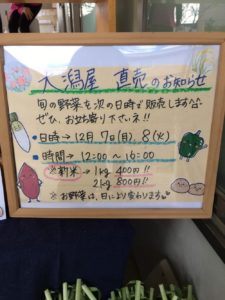 大潟屋 直売のお知らせ
旬の野菜を次の日時で販売します
ぜひ、お立ち寄り下さいネ!!
•日時→12月7(月)、8(火)
•時間→12:00〜16:00
※新米→1kg 400円!!
2kg 800円!!
※お野菜は、日により変わります